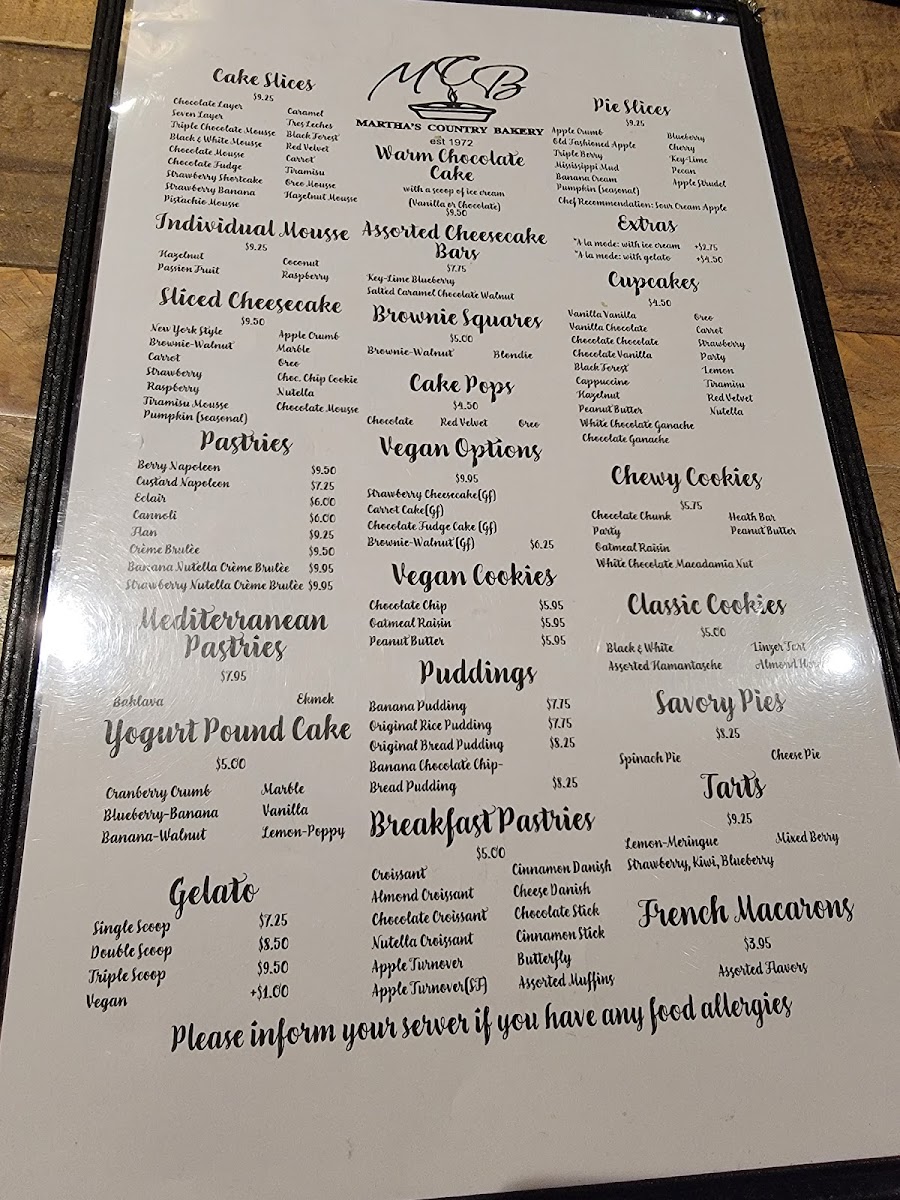 Cake Slices
$9.25
Chocolate Layer
Seven Layer
Triple Chocolate Mousse
Black & White Mousse
Chocolate Mousse
Chocolate Fudge
Strawberry Shortcake
Strawberry Banana
Pistachio Mousse
Caramel
Tres Leches
Black Forest
Red Velvet
Carrot
Tiramisu
Oreo Mousse
Hazelnut Mousse
Individual Mousse
$9.25
Hazelnut
Passion Fruit
Coconut
Raspberry
Sliced Cheesecake
$9.50
New York Style
Brownie-Walnut
Carrot
Strawberry
Raspberry
Tiramisu Mousse
Pumpkin (seasonal)
Apple Crumb
Marble
Oreo
Choc. Chip Cookie
Nutella
Chocolate Mousse
Pastries
Berry Napoleon $9.50
Custard Napoleon $7.25
Eclair $6.00
Cannoli $6.00
Flan $9.25
Crème Brulèe $9.50
Banana Nutella Crème Brulèe $9.95
Strawberry Nutella Crème Brulèe $9.95
Mediterranean
Pastries
$7.95
Baklava Ekmek
Yogurt Pound Cake
$5.00
Cranberry Crumb
Blueberry-Banana
Banana-Walnut
Marble
Vanilla
Lemon-Poppy
Gelato
Single Scoop $7.25
Double Scoop $8.50
Triple Scoop $9.50
Vegan +$1.00
MCB
MARTHA'S COUNTRY BAKERY
est 1972
Warm Chocolate
Cake
with a scoop of ice cream
(Vanilla or Chocolate)
$9.50
Assorted Cheesecake
Bars
$7.75
Key-Lime Blueberry
Salted Caramel Chocolate Walnut
Brownie Squares
$5.00
Brownie-Walnut Blondie
Cake Pops
$4.50
Chocolate Red Velvet Oreo
Vegan Options
$9.95
Strawberry Cheesecake(Gf)
Carrot Cake(Gf)
Chocolate Fudge Cake (Gf)
Brownie-Walnut (Gf) $6.25
Vegan Cookies
Chocolate Chip $5.95
Oatmeal Raisin $5.95
Peanut Butter $5.95
Puddings
Banana Pudding $7.75
Original Rice Pudding $7.75
Original Bread Pudding $8.25
Banana Chocolate Chip-
Bread Pudding $8.25
Breakfast Pastries
$5.00
Croissant
Almond Croissant
Chocolate Croissant
Nutella Croissant
Apple Turnover
Apple Turnover(SF)
Cinnamon Danish
Cheese Danish
Chocolate Stick
Cinnamon Stick
Butterfly
Assorted Muffins
Pie Slices
$9.25
Apple Crumb
Old Fashioned Apple
Triple Berry
Mississippi Mud
Banana Cream
Pumpkin (seasonal)
Blueberry
Cherry
Key-Lime
Pecan
Apple Strudel
Chef Recommendation: Sour Cream Apple
Extras
"A la mode: with ice cream +$2.75
"A la mode: with gelato +$4.50
Cupcakes
$4.50
Vanilla Vanilla
Vanilla Chocolate
Chocolate Chocolate
Chocolate Vanilla
Black Forest
Cappuccino
Hazelnut
Peanut Butter
White Chocolate Ganache
Chocolate Ganache
Oreo
Carrot
Strawberry
Party
Lemon
Tiramisu
Red Velvet
Nutella
Chewy Cookies
$5.75
Chocolate Chunk
Party
Oatmeal Raisin
White Chocolate Macadamia Nut
Heath Bar
Peanut Butter
Classic Cookies
$5.00
Black & White
Assorted Hamantasche
Linzer Tart
Almond
Savory Pies
$8.25
Spinach Pie Cheese Pie
Tarts
$9.25
Lemon-Meringue Mixed Berry
Strawberry, Kiwi, Blueberry
French Macarons
$3.95
Assorted Flavors
Please inform your server if you have any food allergies